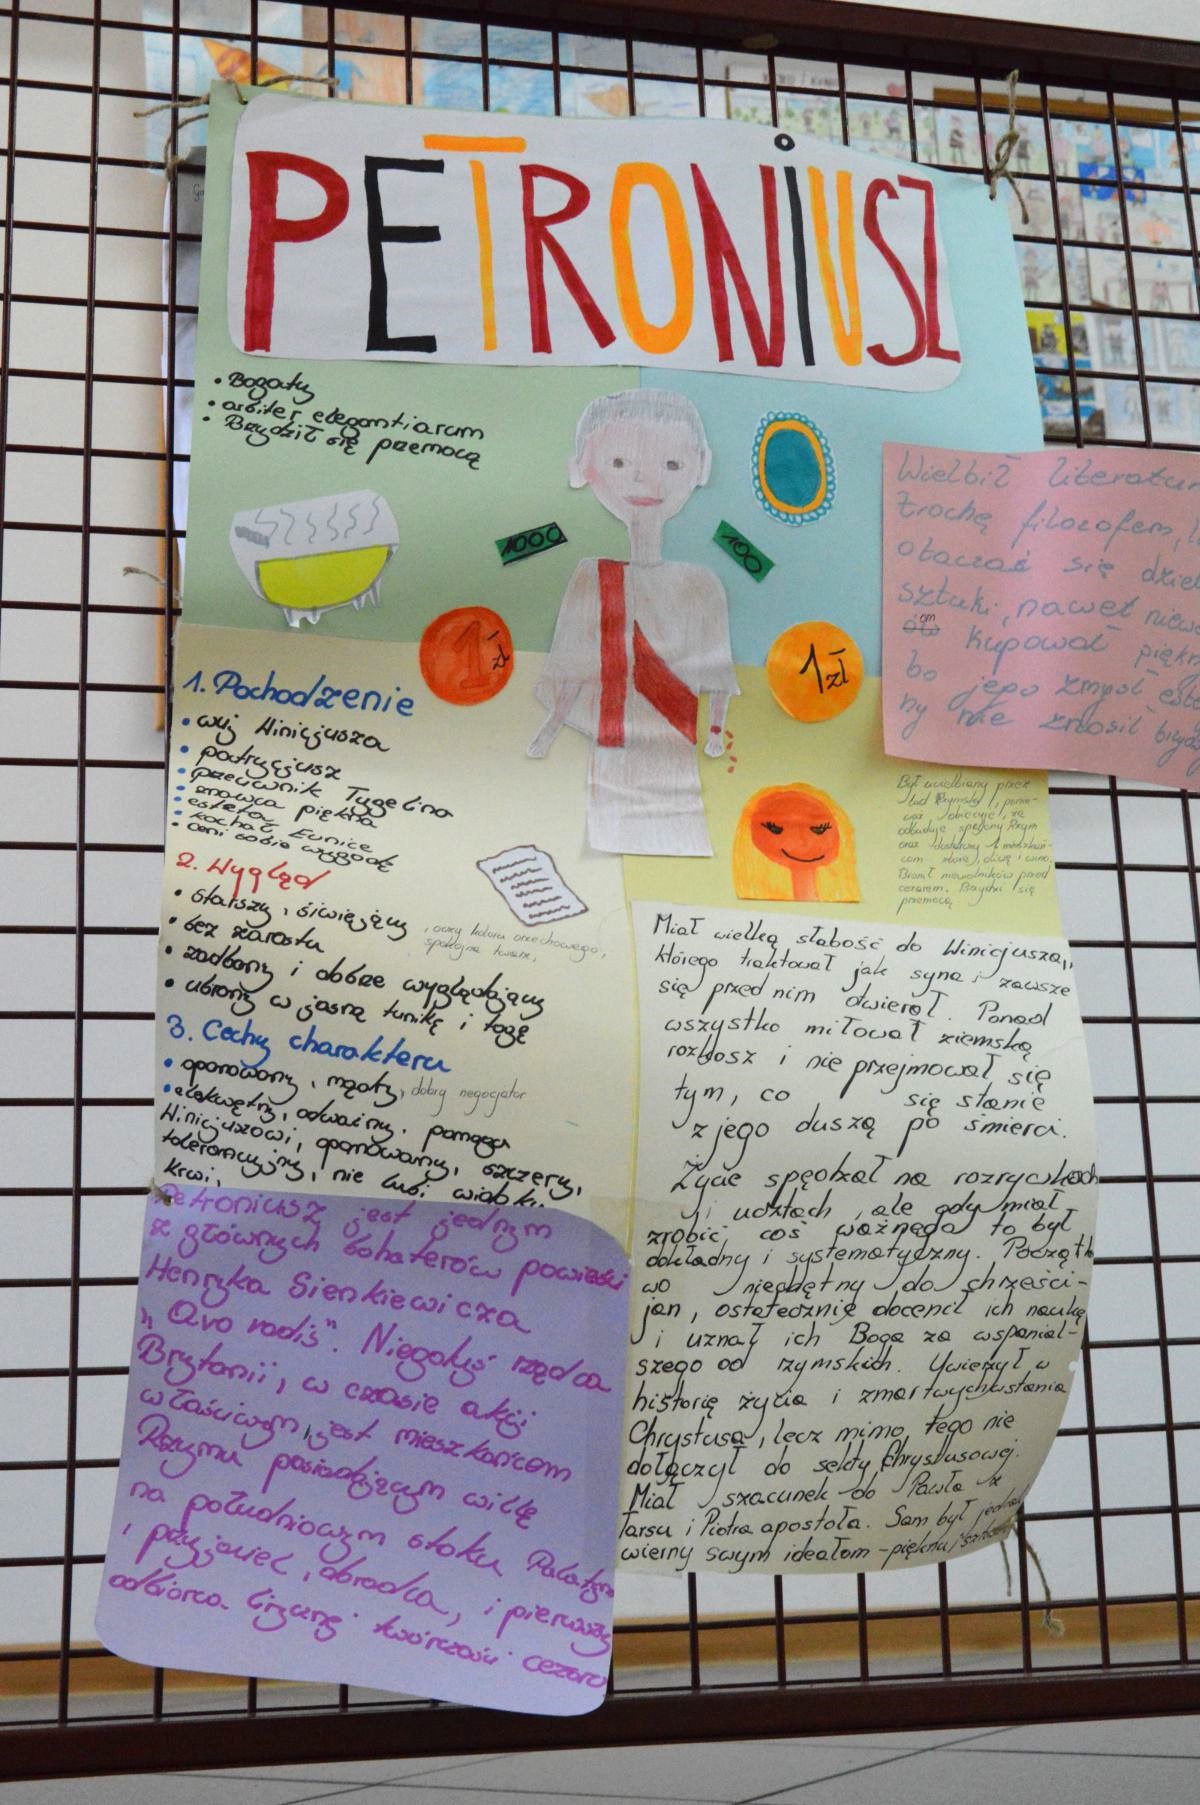 PETRONIUSZ
• Bogaty
• arbiter elegantiarum
• Brzydził się przemocą
1000
100
1 zł
1 zł
Wielbił literatur
trochę filozofem, l
otaczać się dzieł
sztuki, nawet niewo
om
kupował piękn
bo jego zmysł este
ny nie znosił brzy
1. Pochodzenie
• wuj Winicjusza
• patrycjusz
• przeciwnik Tygelina
• znawca piękna
• esteta
• kochał Eunice
• ceni sobie wygodę
2. Wygląd
• starszy, siwiejący
, oczy koloru orzechowego,
spokojna twarz,
• bez zarostu
• zadbany i dobrze wyglądający
• ubrany w jasną tunikę i togę
3. Cechy charakteru
• opanowany, mądry, dobry negocjator
• elokwętny, odważny, pomaga
Winicjuszowi, opanowany, szczery,
tolerancyjny, nie lubi widoku
krwi,
Był uwielbiany przez
lud Rzymski, ponie-
waż obiecuje, że
odbuduje spalony Rzym
oraz dostarczy mieszkań-
com zboże, oliwę i wino.
Bronił niewolników przed
cezarem. Brzydzi się
przemocą
Miał wielką słabość do Winicjusza,
którego traktował jak syna i zawsze
się przed nim otwierał. Ponad
wszystko miłował ziemską
rozkosz i nie przejmował się
tym, co się stanie
z jego duszą po śmierci.
Życie spędzał na rozrywkach
i ucztach, ale gdy miał
zrobić coś ważnego to był
dokładny i systematyczny. Początko
wo niechętny do chrześci-
jan, ostatecznie docenił ich naukę
i uznał ich Boga za wspanial-
szego od rzymskich. Uwierzył w
historię życia i zmartwychwstania
Chrystusa, lecz mimo tego nie
dołączył do sekty Chrystusowej.
Miał szacunek do Pawła z
Tarsu i Piotra apostoła. Sam był
wierny swym ideałom - pięknu i
Petroniusz jest jednym
z głównych bohaterów powieści
Henryka Sienkiewicza
„Qvo vadis". Niegdyś rządca
Brytanii, w czasie akcji
właściwym, jest mieszkańcem
Rzymu posiadającym willę
na południowym stoku Palatynu
i przyjaciel, doradca, i pierwszy
odbiorca lirycznej twórczości cezara